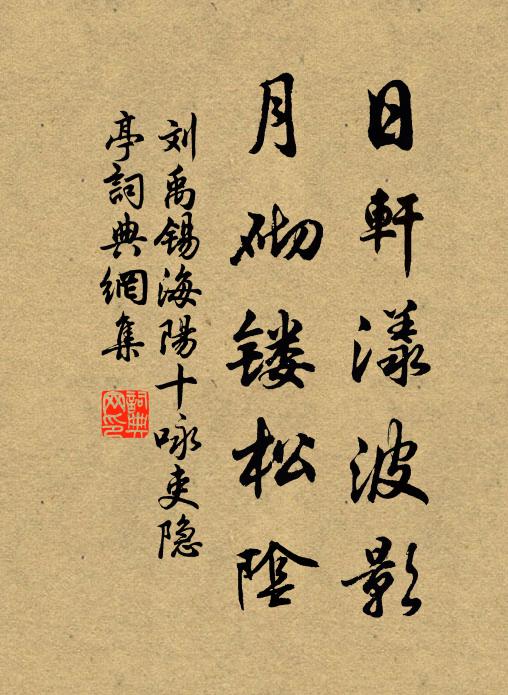 日軒漾波影
月砌镂松陰
刘禹锡海陽十咏吏隐
亭詞典網集
詞典
网印